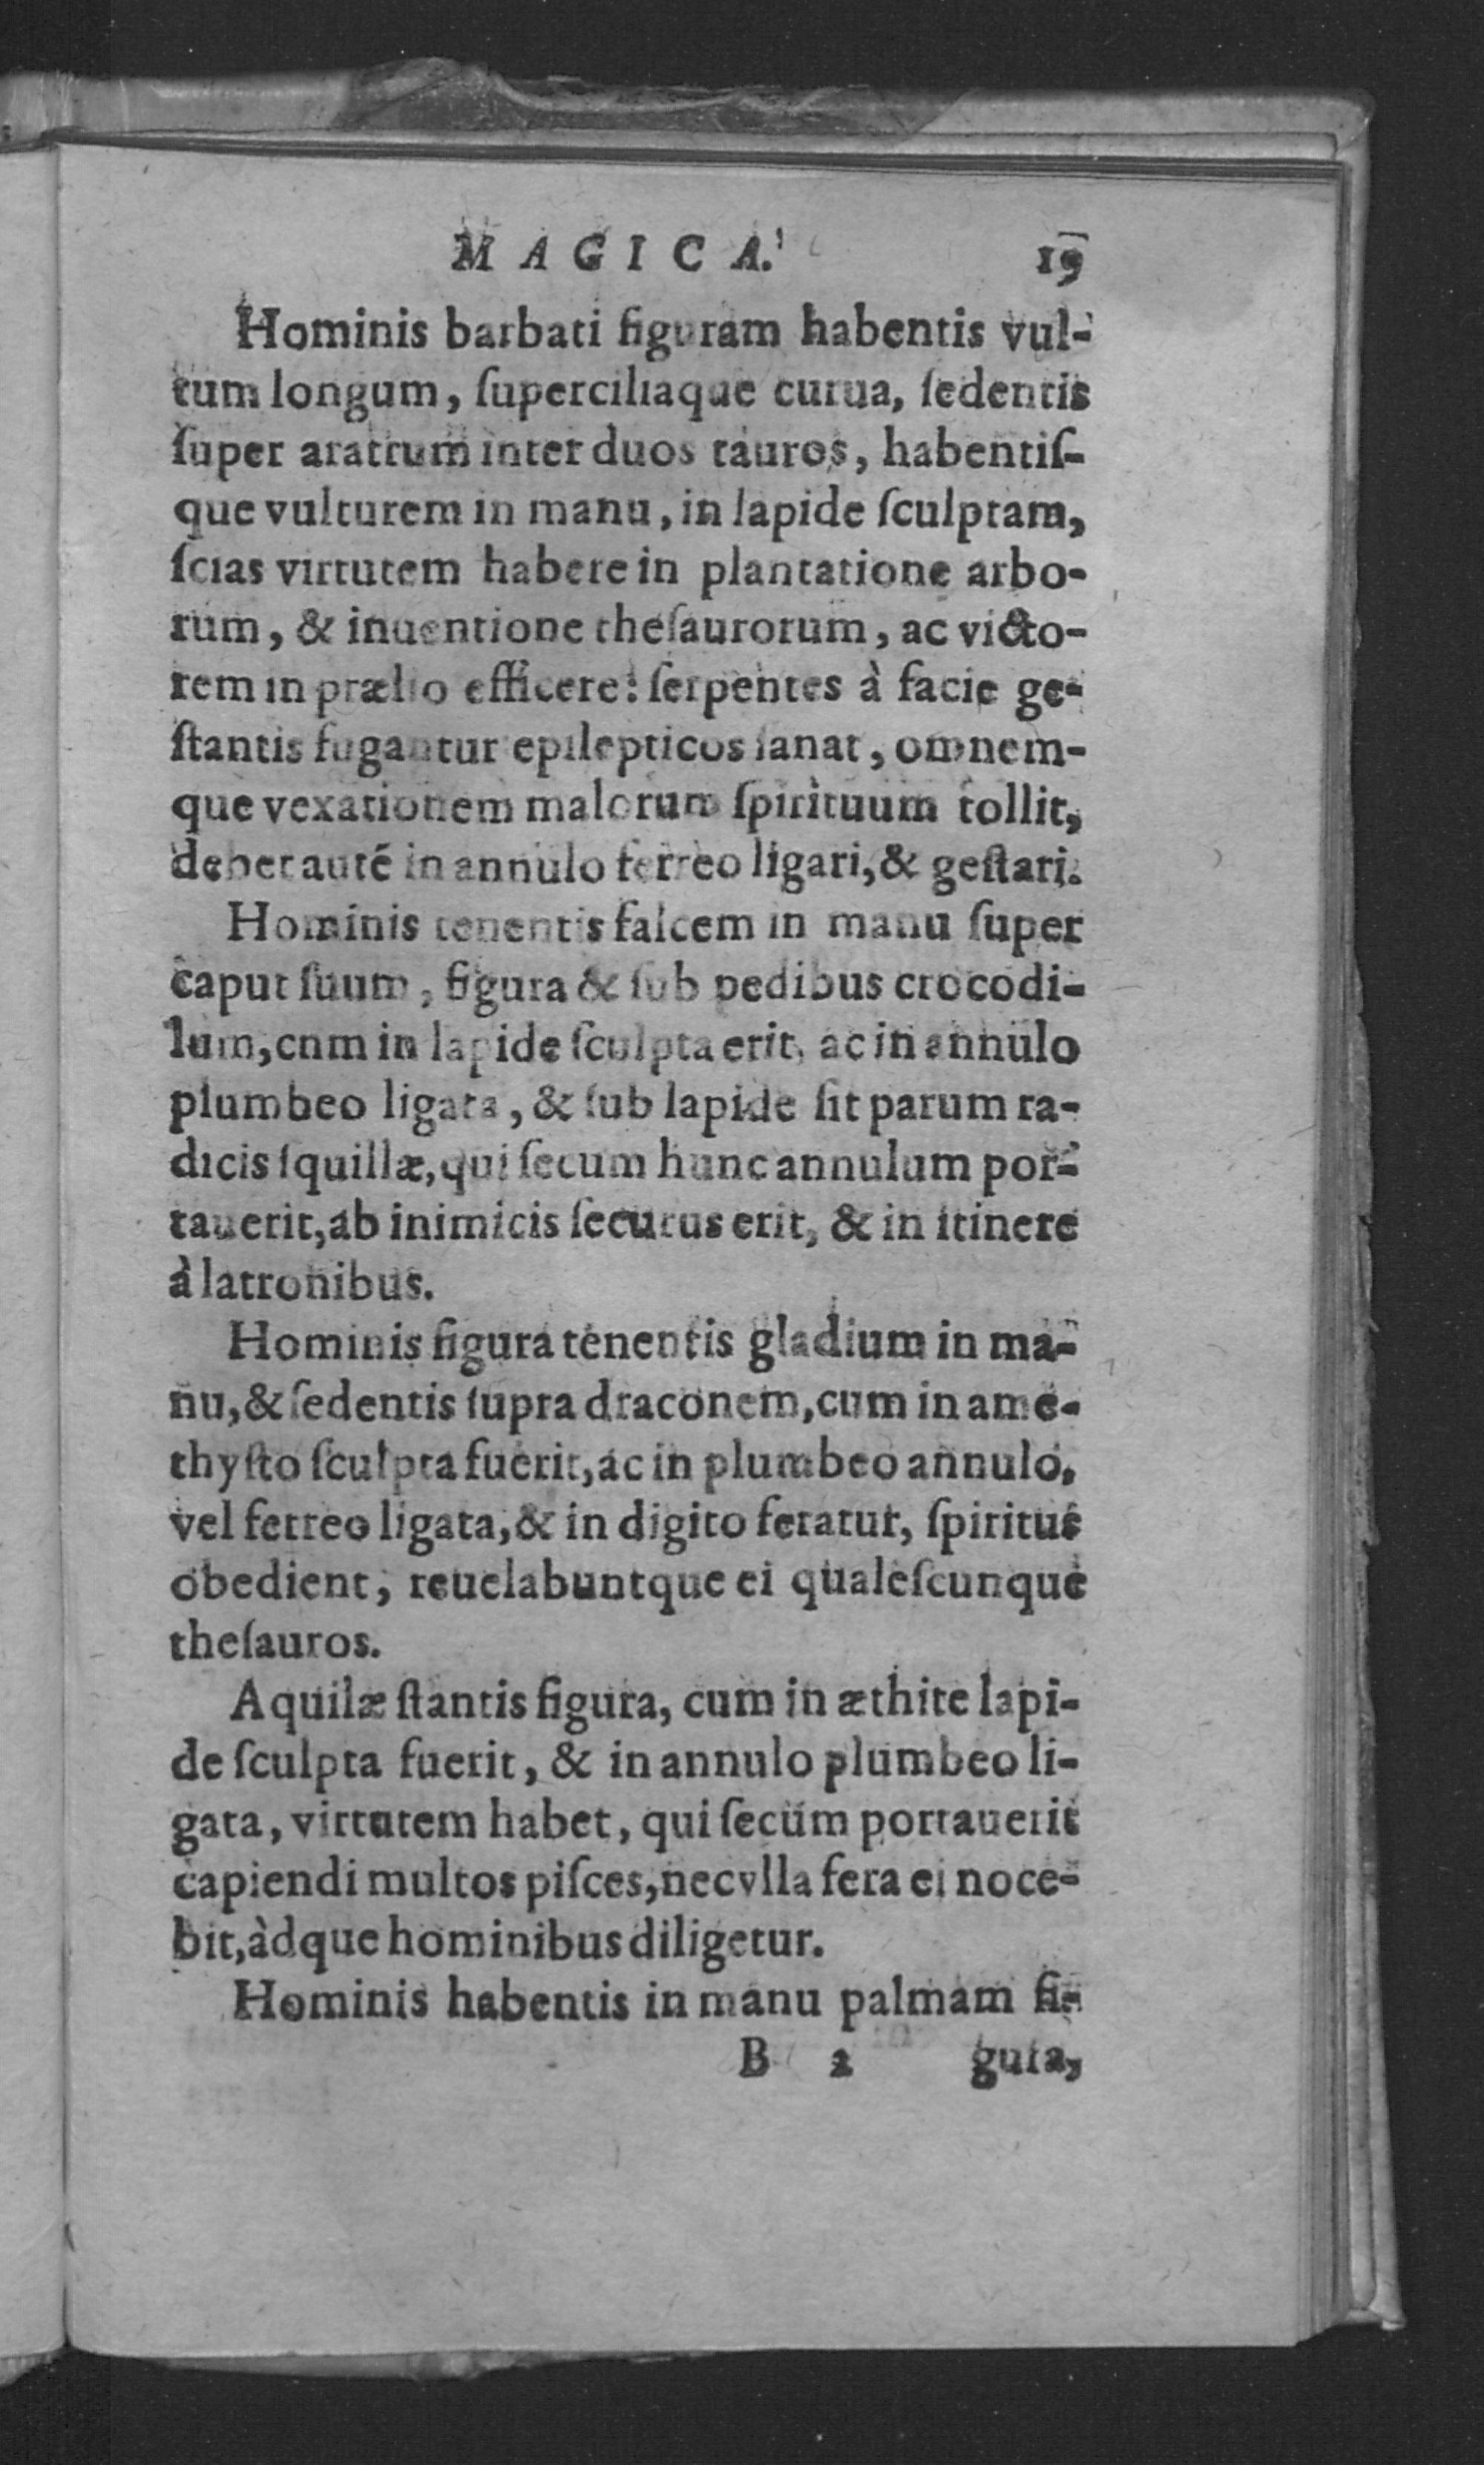 MAGICA. 19
Hominis barbati figuram habentis vul-
tum longum, ſuperciliaque curua, ſedentis
ſuper aratrum inter duos tauros, habentiſ-
que vulturem in manu, in lapide ſculptam,
ſcias virtutem habere in plantatione arbo-
rum, & inuentione theſaurorum, ac victo-
rem in prælio efficere: ſerpentes à facie ge-
ſtantis fugantur epilepticos ſanat, omnem-
que vexationem malorum ſpirituum tollit,
debet auté in annulo ferreo ligari, & geſtari.
Hominis tenentis falcem in manu ſuper
caput ſuum, figura & ſub pedibus crocodi-
lum, cnm in lapide ſculpta erit, ac in annulo
plumbeo ligata, & ſub lapide ſit parum ra-
dicis ſquillæ, qui ſecum hunc annulum por-
tauerit, ab inimicis ſecurus erit, & in itinere
à latronibus.
Hominis figura tenentis gladium in ma-
nu, & ſedentis ſupra draconem, cum in ame-
thyſto ſculpta fuerit, ac in plumbeo annulo,
vel ferreo ligata, & in digito feratur, ſpiritus
obedient, reuelabuntque ei qualeſcunque
theſauros.
Aquilæ ſtantis figura, cum in æthite lapi-
de ſculpta fuerit, & in annulo plumbeo li-
gata, virtutem habet, qui ſecum portauerit
capiendi multos piſces, nec vlla fera ei noce-
bit, àdque hominibus diligetur.
Hominis habentis in manu palmam fi-
B 2 gura,